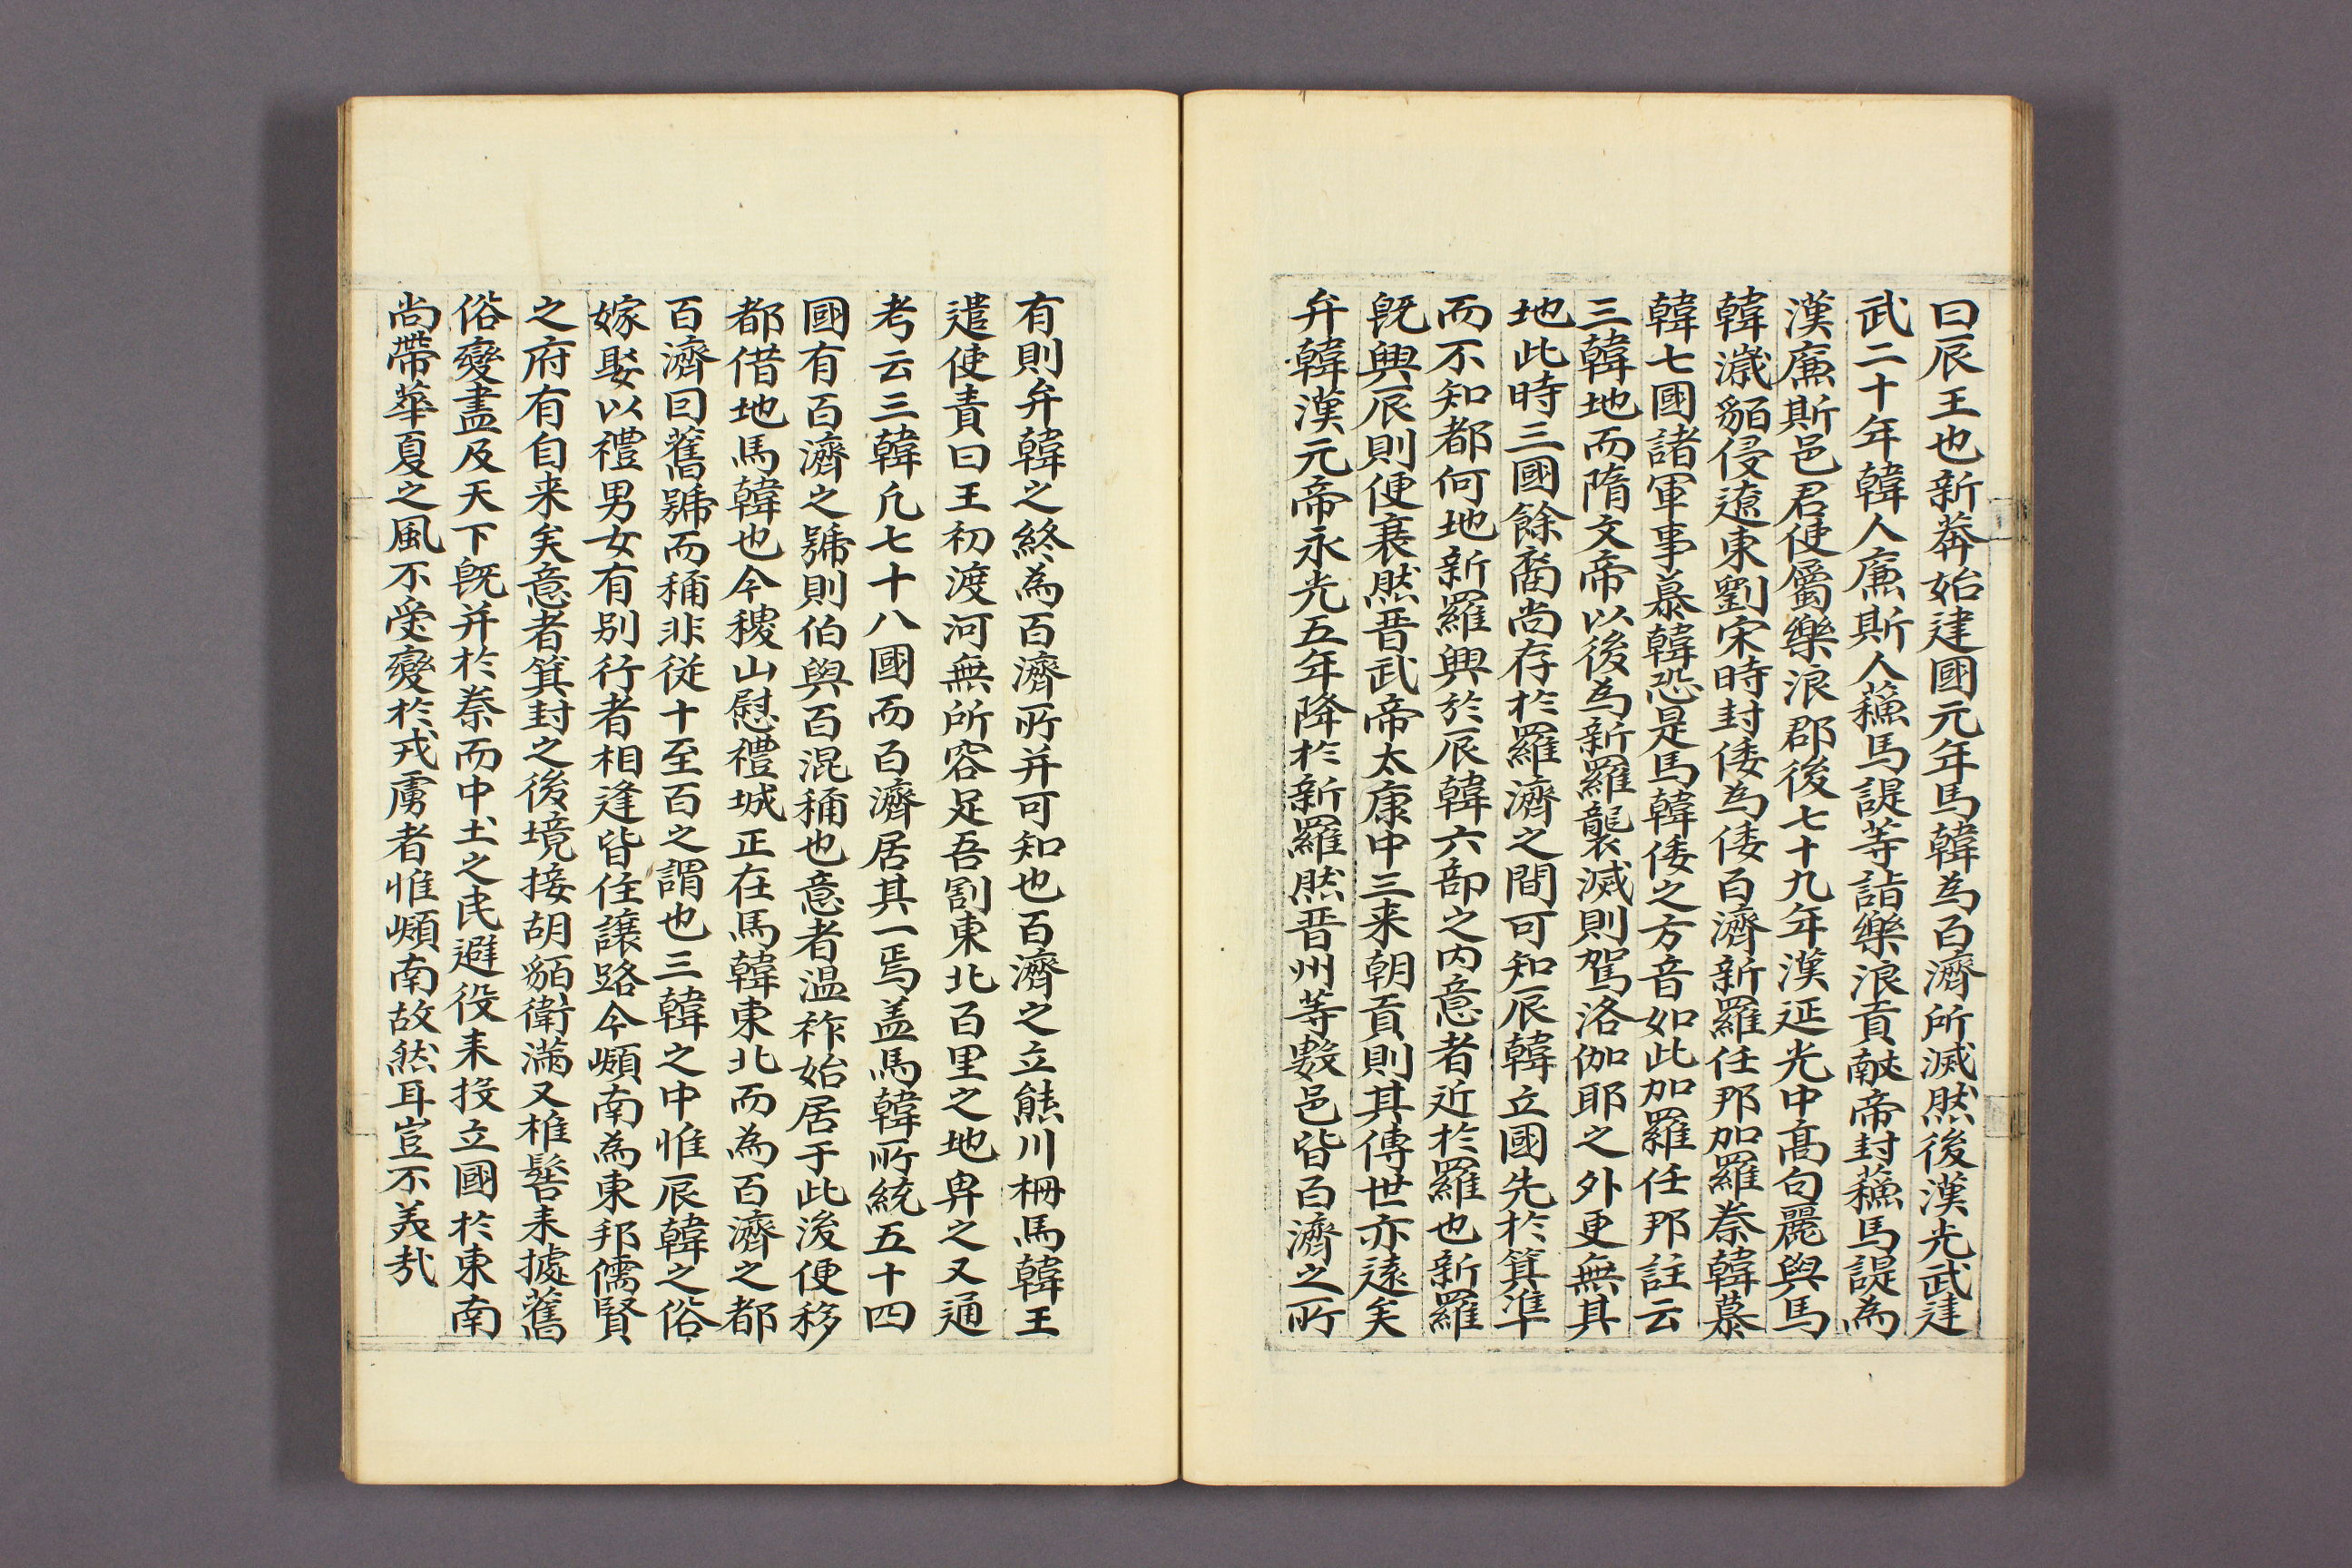 曰辰王也新莽始建國元年馬韓為百濟所滅然後漢光武建
武二十年韓人廉斯人蘓馬諟等詣樂浪貢献帝封蘓馬諟為
漢廉斯邑君使屬樂浪郡後七十九年漢延光中髙句麗與馬
韓濊貊侵遼東劉宋時封倭為倭百濟新羅任那加羅秦韓慕
韓七國諸軍事慕韓恐是馬韓倭之方音如此加羅任那註云
三韓地而隋文帝以後為新羅襲滅則駕洛伽耶之外更無其
地此時三國餘裔尚存於羅濟之間可知辰韓立國先於箕準
而不知都何地新羅興於辰韓六部之内意者近於羅也新羅
旣興辰則便衰然晋武帝太康中三来朝貢則其傳世亦遠矣
弁韓漢元帝永光五年降於新羅然晋州等數邑皆百濟之所
有則弁韓之終為百濟所并可知也百濟之立熊川柵馬韓王
遣使責曰王初渡河無所容足吾割東北百里之地畀之又通
考云三韓凢七十八國而百濟居其一焉盖馬韓所統五十四
國有百濟之號則伯與百混稱也意者温祚始居于此後便移
都借地馬韓也今稷山慰禮城正在馬韓東北而為百濟之都
百濟曰舊號而稱非從十至百之謂也三韓之中惟辰韓之俗
嫁娶以禮男女有别行者相逢皆住讓路今嶺南為東邦儒賢
之府有自来矣意者箕封之後境接胡貊衛滿又椎髻来據舊
俗變盡及天下旣并於秦而中土之民避役来投立國於東南
尚帶華夏之風不受變於戎虜者惟嶺南故然耳豈不美哉